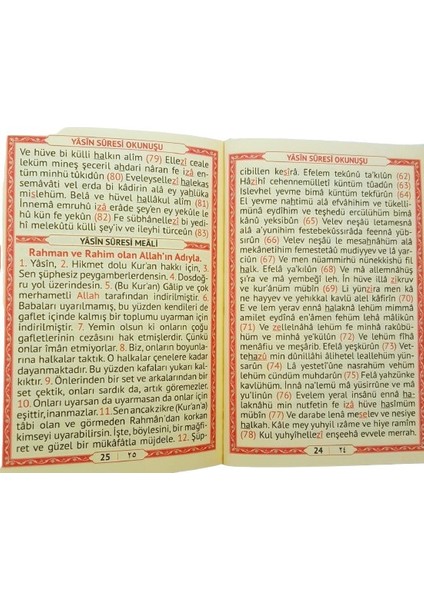 YÂSÎN SÛRESİ OKUNUŞU
Ve hüve bi külli halkın alîm (79) Ellezî ceale
leküm mineş şeceril ahdari nâran fe izâ en-
tüm minhü tûkidûn (80) Eveleysellezî halekas
semâvâti vel erda bi kâdirin alâ ey yahlüka
mislehüm. Belâ ve hüvel hallâkul alîm (81)
İnnemâ emruhû izâ erâde şey'en ey yekûle le
hû kün fe yekûn (82) Fe sübhânellezî bi yedi-
hî melekûtü külli şey'iv ve ileyhi türceûn (83)
YÂSÎN SÛRESİ MEÂLİ
Rahman ve Rahim olan Allah'ın Adıyla.
1. Yâsîn, 2. Hikmet dolu Kur'an hakkı için, 3.
Sen şüphesiz peygamberlerdensin. 4. Dosdoğ-
ru yol üzerindesin. 5. (Bu Kur'an) Gâlip ve çok
merhametli Allah tarafından indirilmiştir. 6.
Babaları uyarılmamış, bu yüzden kendileri de
gaflet içinde kalmış bir toplumu uyarman için
indirilmiştir. 7. Yemin olsun ki onların çoğu
gafletlerinin cezâsını hak etmişlerdir. Çünkü
onlar îman etmiyorlar. 8. Biz, onların boyunla-
rına halkalar taktık. O halkalar çenelere kadar
dayanmaktadır. Bu yüzden kafaları yukarı kal-
kıktır. 9. Önlerinden bir set ve arkalarından bir
set çektik, onları sardık da, artık göremezler.
10. Onları uyarsan da uyarmasan da onlar için
eşittir, inanmazlar. 11. Sen ancak zikre (Kur'an'a)
tâbi olan ve görmeden Rahmân'dan korkan
kimseyi uyarabilirsin. İşte, böylesini, bir mağfi-
ret ve güzel bir mükâfâtla müjdele. 12. Şüp-
25 ٢٥
YÂSÎN SÛRESİ OKUNUŞU
cibillen kesîrâ. Efelem tekûnû ta'kılûn (62)
Hâzihî cehennemülletî küntüm tûadûn (63)
Islevhel yevme bimâ küntüm tekfürûn (64)
El yevme nahtimü alâ efvâhihim ve tükelli-
münâ eydîhim ve teşhedü ercülühüm bimâ
kânû yeksibûn (65) Velev neşâü letamesnâ
alâ a'yunihim festebekussırâta feennâ yübsi-
rûn (66) Velev neşâü le mesahnâhüm alâ
mekânetihim femestetâû mudıyyev ve lâ yerciûn
(67) Ve men nüammirhü nünekkishü fil
halk. Efelâ ya'kılûn (68) Ve mâ allemnâhüş
şi'ra ve mâ yembeğî leh. İn hüve illâ zikruv
ve kur'ânüm mübîn (69) Li yünzira men kâ
ne hayyev ve yehıkkal kavlü alel kâfirîn (70)
E ve lem yerav ennâ halaknâ lehüm mimmâ
amilet eydînâ en'âmen fehüm lehâ mâlikûn
(71) Ve zellelnâhâ lehüm fe minhâ rakûbü-
hüm ve minhâ ye'külûn (72) Ve lehüm fîhâ
menâfiu ve meşârib. Efelâ yeşkürûn (73) Vet-
tehazû min dûnillâhi âliheten leallehüm yün-
sarûn (74) Lâ yestetîûne nasrahüm ve hüm
lehüm cündüm muhdarûn (75) Felâ yahzünke
kavlühüm. İnnâ na'lemü mâ yüsirrûne ve mâ
yu'linûn (76) Evelem yeral insânü ennâ ha-
laknâhü min nutfetin fe izâ hüve hasîmüm
mübîn (77) Ve darabe lenâ meselev ve nesiye
halkah. Kâle mey yuhyil izâme ve hiye ramîm
(78) Kul yuhyîhellezî enşeehâ evvele merrah.
24 ٢٤